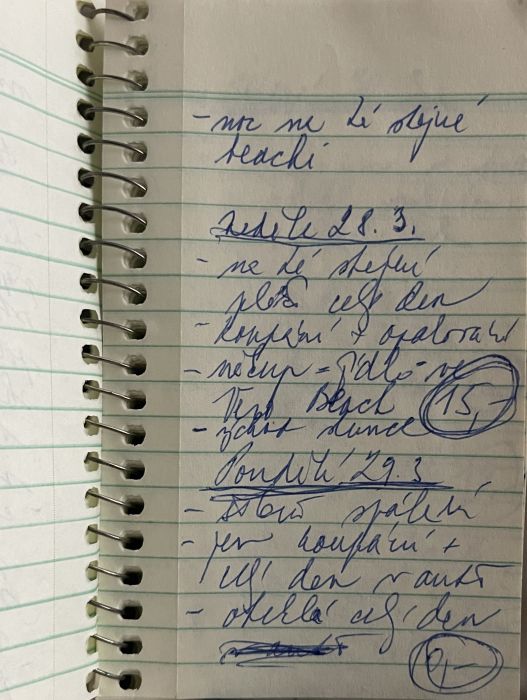 - noc na té stejné
beachi
Neděle 28.3.
- na té stejné
pláži celý den
- koupání + opalování
- nákup - jídlo ve
Vero Beach 15,-
- západ slunce
Pondělí 29.3.
- spálení
- jen koupání +
celý den v autě
- celý den
0,-